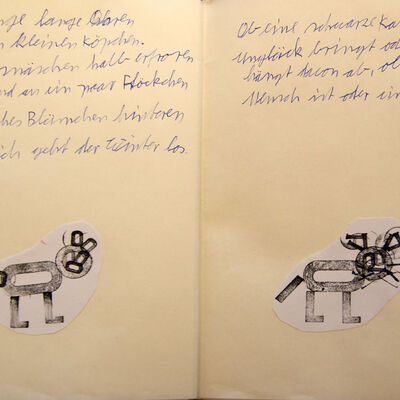 lange Ohren
kleinen Köpfchen.
näschen halb erfroren
an ein paar Flöckchen
Blümchen hinteren
geht der Winter los.
Ob eine schwarze Ka
Unglück bringt od
hängt davon ab, ob
Mensch ist oder ein